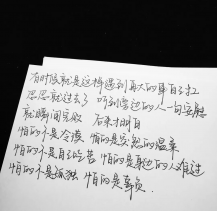 有时候就是这样 遇到再大的事自己扛
忍忍就过去了 听到旁边的人一句安慰
就瞬间完败 后来才明白
怕的不是冷漠 怕的是突然的温柔
怕的不是自己吃苦 怕的是身边的人难过
怕的不是孤独 怕的是辜负.